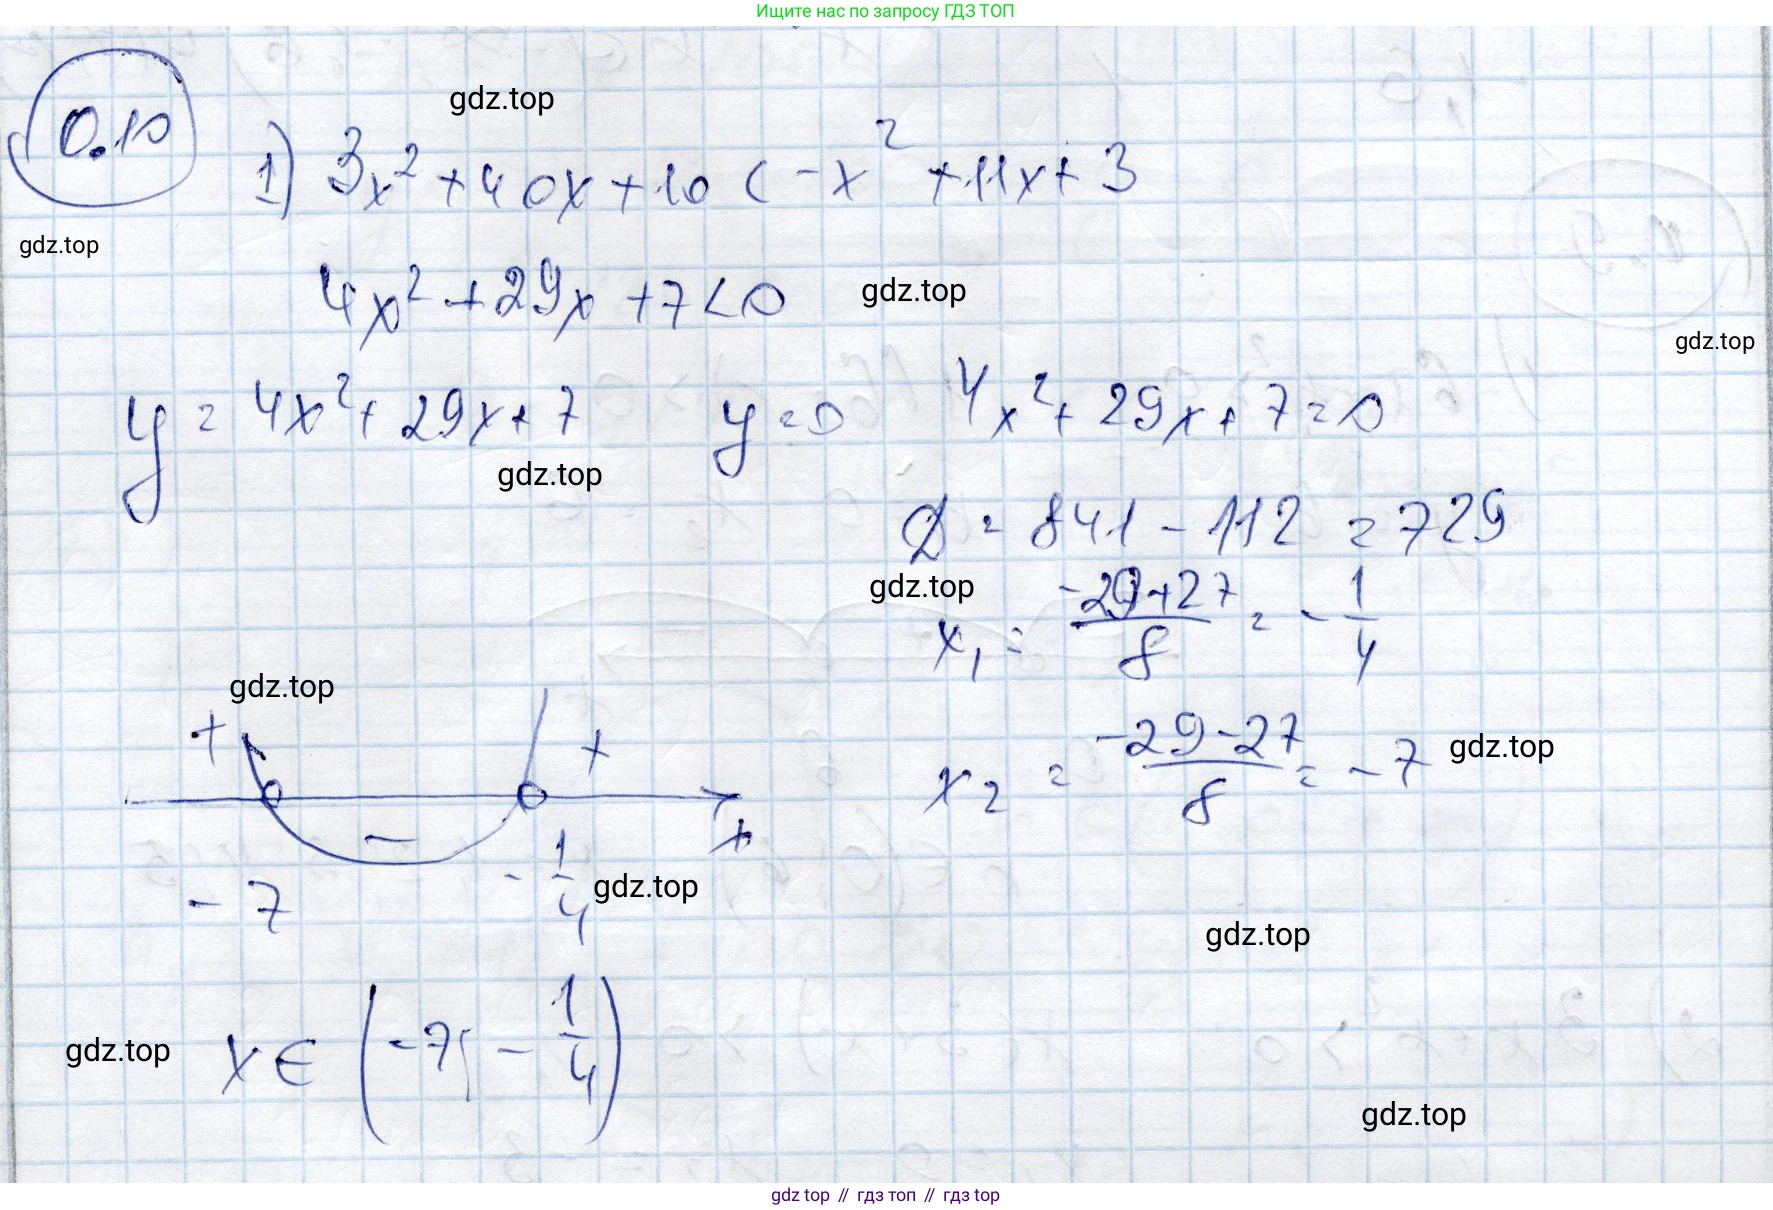 Ищите нас по запросу ГДЗ ТОП
0.10
gdz.top
1) 3x² + 40x + 10 < -x² + 11x + 3
gdz.top
4x² + 29x + 7 < 0
gdz.top
gdz.top
y = 4x² + 29x + 7   y = 0   4x² + 29x + 7 = 0
gdz.top
D = 841 - 112 = 729
gdz.top
x₁ = (-29+27)/8 = -1/4
gdz.top
x₂ = (-29-27)/8 = -7
gdz.top
+ - + x
-7   -1/4
gdz.top
gdz.top
x ∈ (-7; -1/4)
gdz.top
gdz.top
gdz top // гдз топ // gdz top